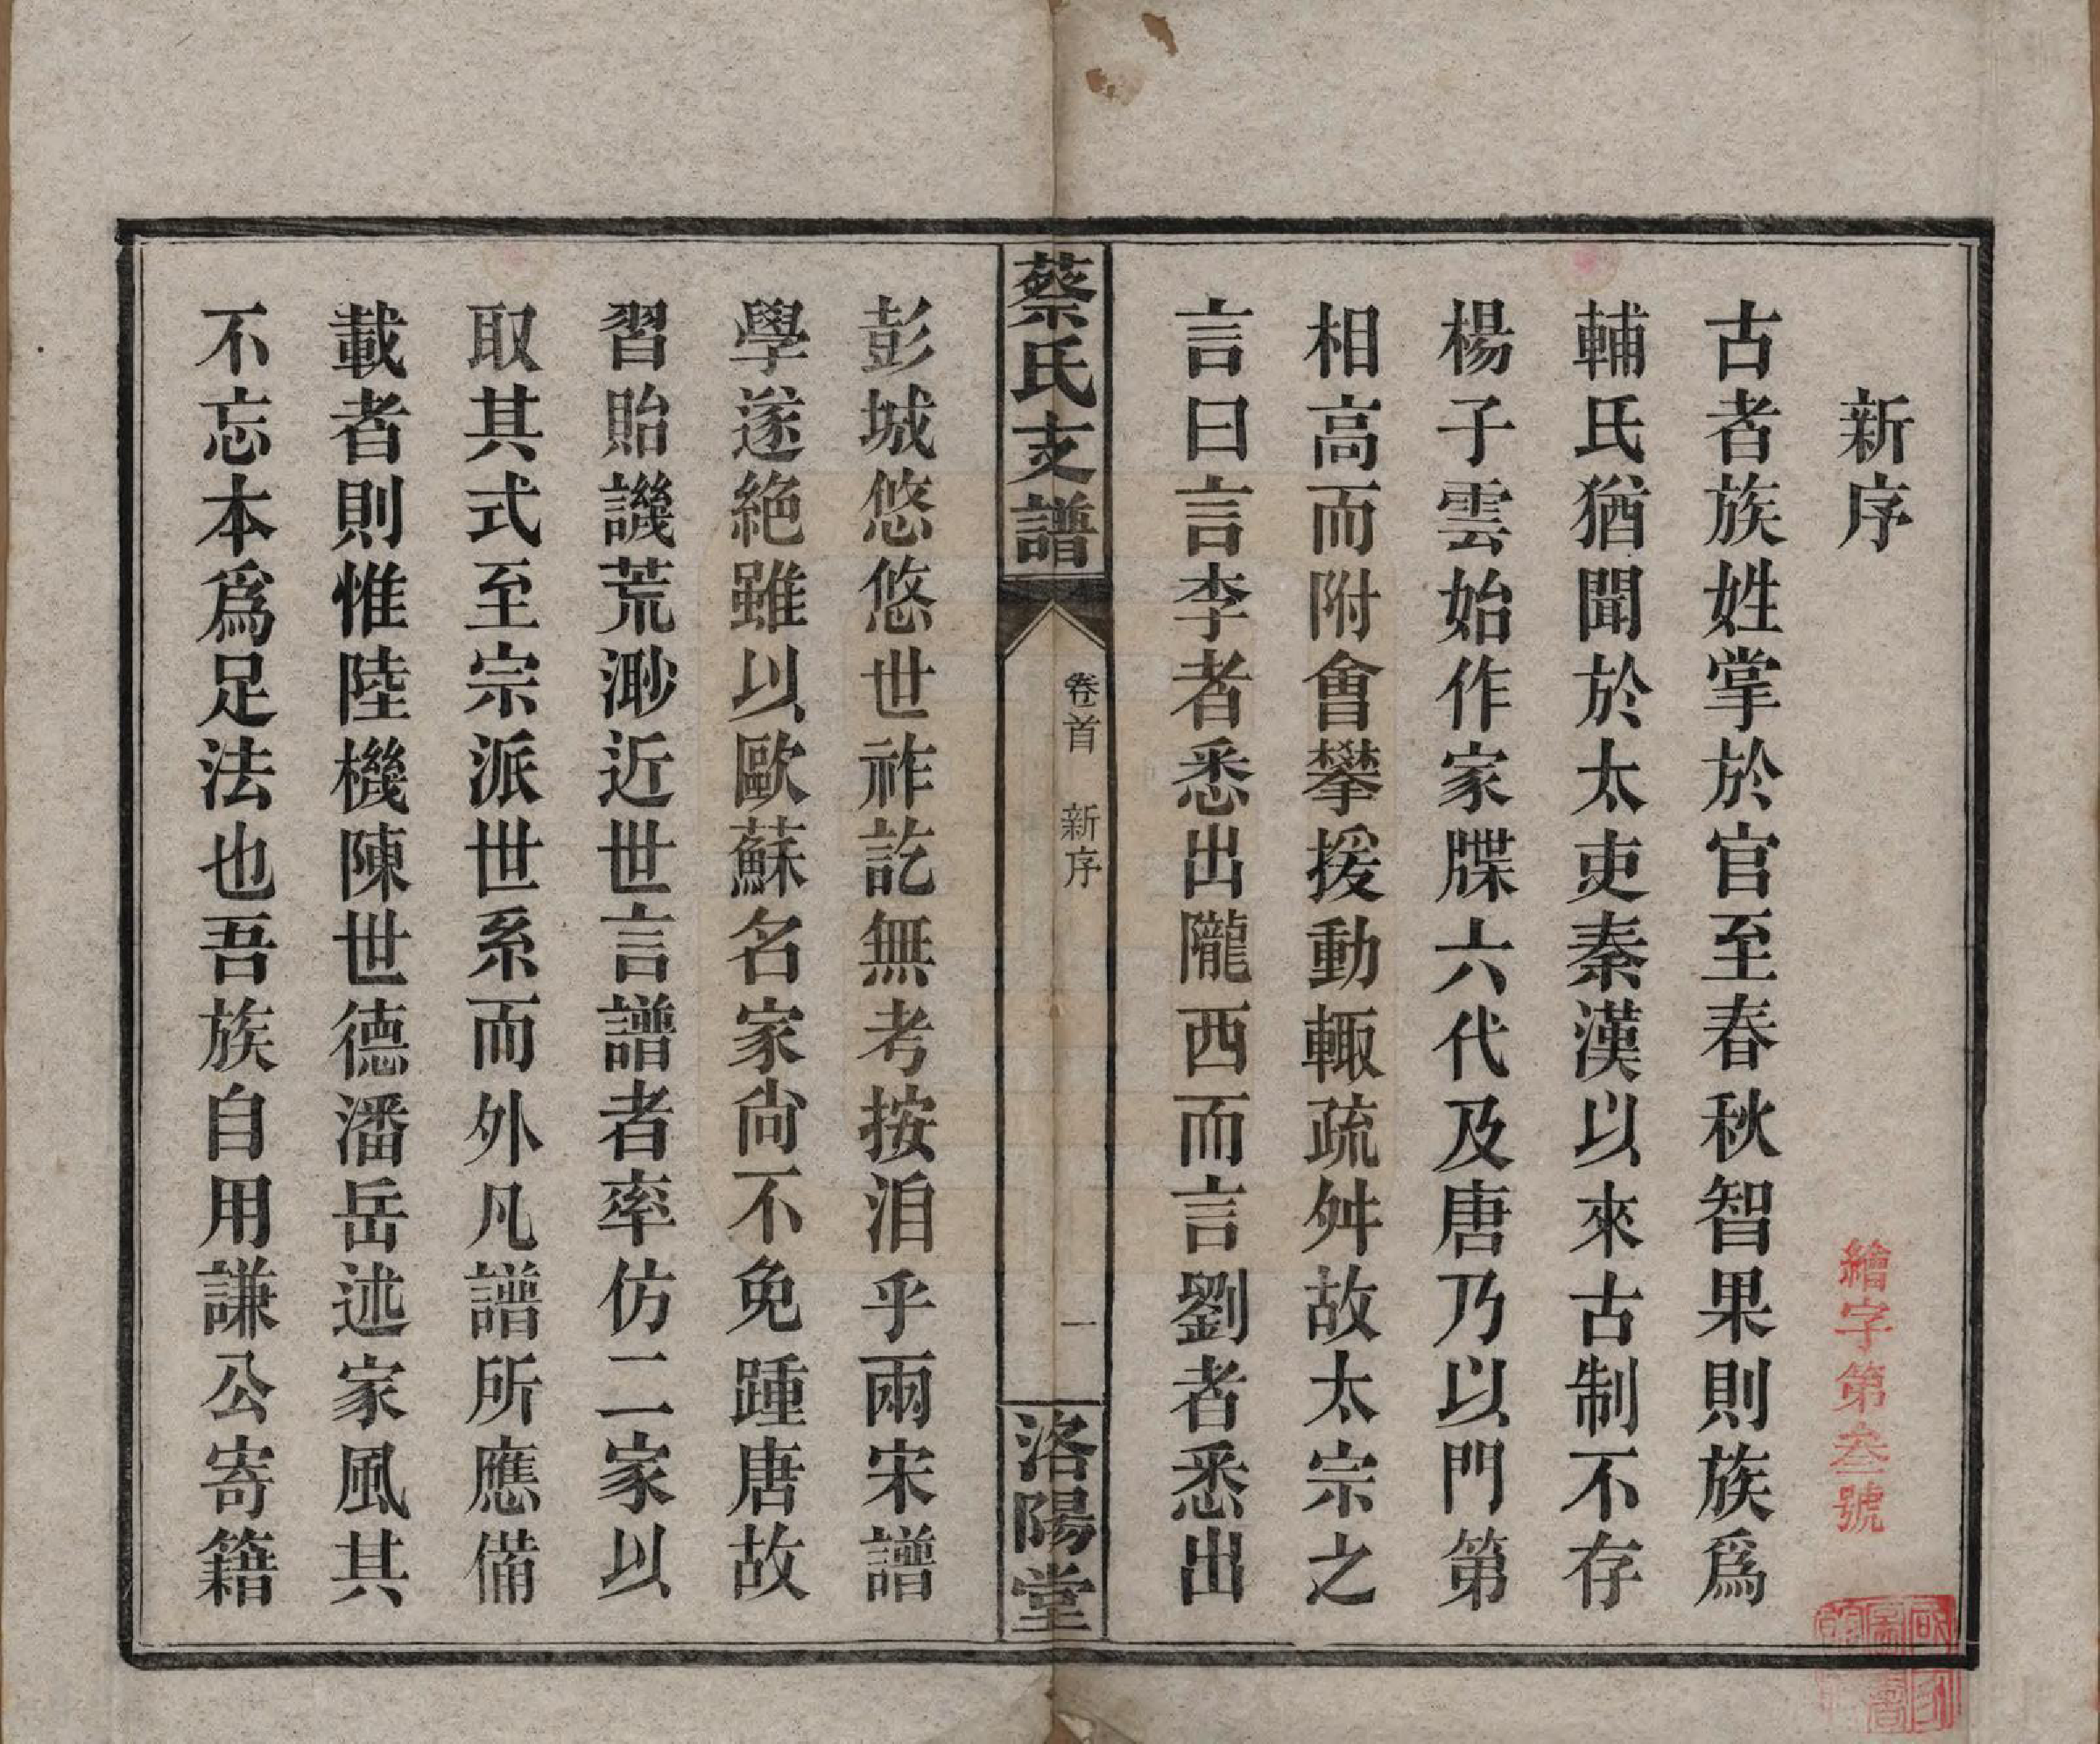 新序
繪字第叁號
古者族姓掌於官至春秋智果則族爲
輔氏猶聞於太吏秦漢以來古制不存
楊子雲始作家牒六代及唐乃以門第
相高而附會攀援動輙疏舛故太宗之
言曰言李者悉出隴西而言劉者悉出
蔡氏支譜
卷首 新序
一
洛陽堂
彭城悠悠世祚訖無考按洎乎兩宋譜
學遂絶雖以歐蘇名家尙不免踵唐故
習貽譏荒渺近世言譜者率仿二家以
取其式至宗派世系而外凡譜所應備
載者則惟陸機陳世德潘岳述家風其
不忘本爲足法也吾族自用謙公寄籍